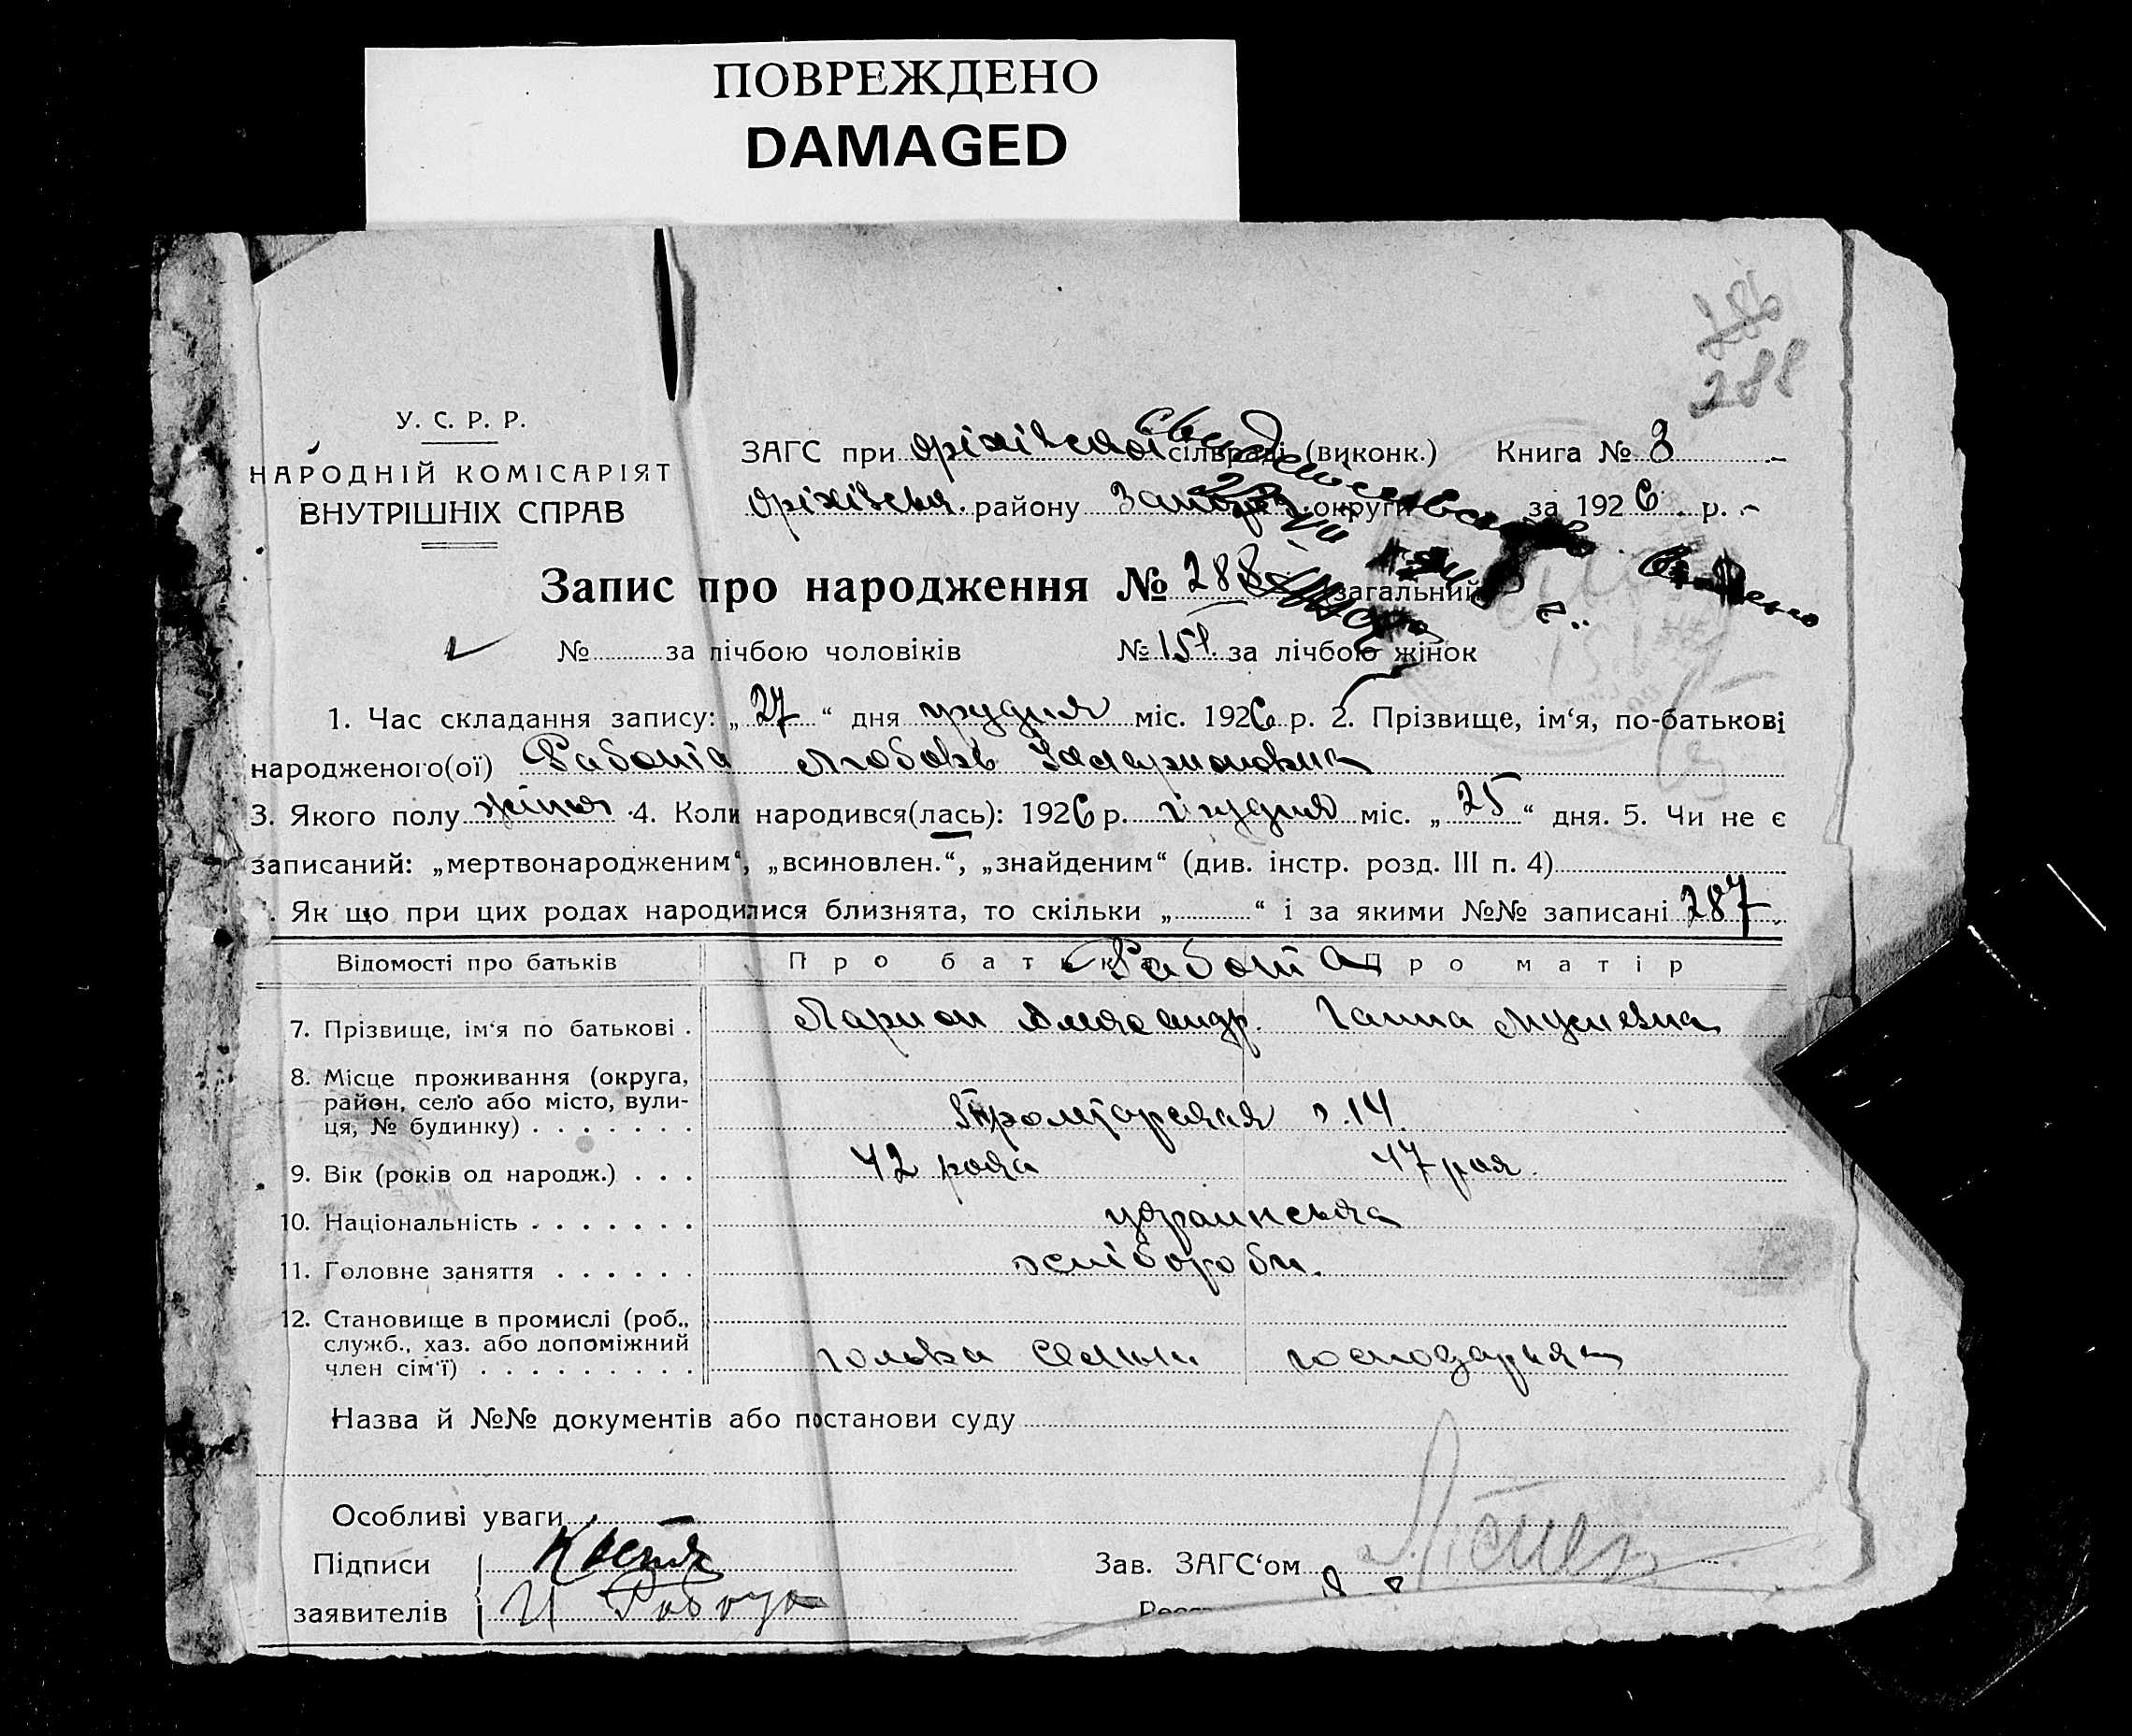 ПОВРЕЖДЕНО
DAMAGED
288
У. С. Р. Р.
НАРОДНІЙ КОМІСАРІЯТ
ВНУТРІШНІХ СПРАВ
ЗАГС при оріхівській сільраді (виконк.) Книга № 3
Оріхівськ. району Запоріз. округи за 1926 р.
Запис про народження № 288 (загальний
№ за лічбою чоловіків № 151 за лічбою жінок
1. Час складання запису: „27“ дня грудня міс. 1926 р. 2. Прізвище, ім‘я, по-батькові
народженого(ої) Работа Любовь
3. Якого полу жіноч 4. Коли народився(лась): 1926 р. грудня міс. „25“ дня. 5. Чи не є
записаний: „мертвонародженим“, „всиновлен.“, „знайденим“ (див. інстр. розд. III п. 4)
. Як що при цих родах народилися близнята, то скільки „ “ і за якими №№ записані 287
Відомості про батьків Про батька Работа Про матір
7. Прізвище, ім‘я по батькові . Ларион Александр. Ганна Мусиевна
8. Місце проживання (округа,
район, село або місто, вули-
ця, № будинку) . . . . . . . Пролетарская 14
9. Вік (років од народж.) . . . 42 рока 47 рок.
10. Національність . . . . . . . украинська
11. Головне заняття . . . . . . хлібороби.
12. Становище в промислі (роб.,
служб., хаз. або допоміжний
член сім‘ї) . . . . . . . . . голова семьи господарька
Назва й №№ документів або постанови суду
Особливі уваги
Підписи
Зав. ЗАГС‘ом
заявителів И Робота